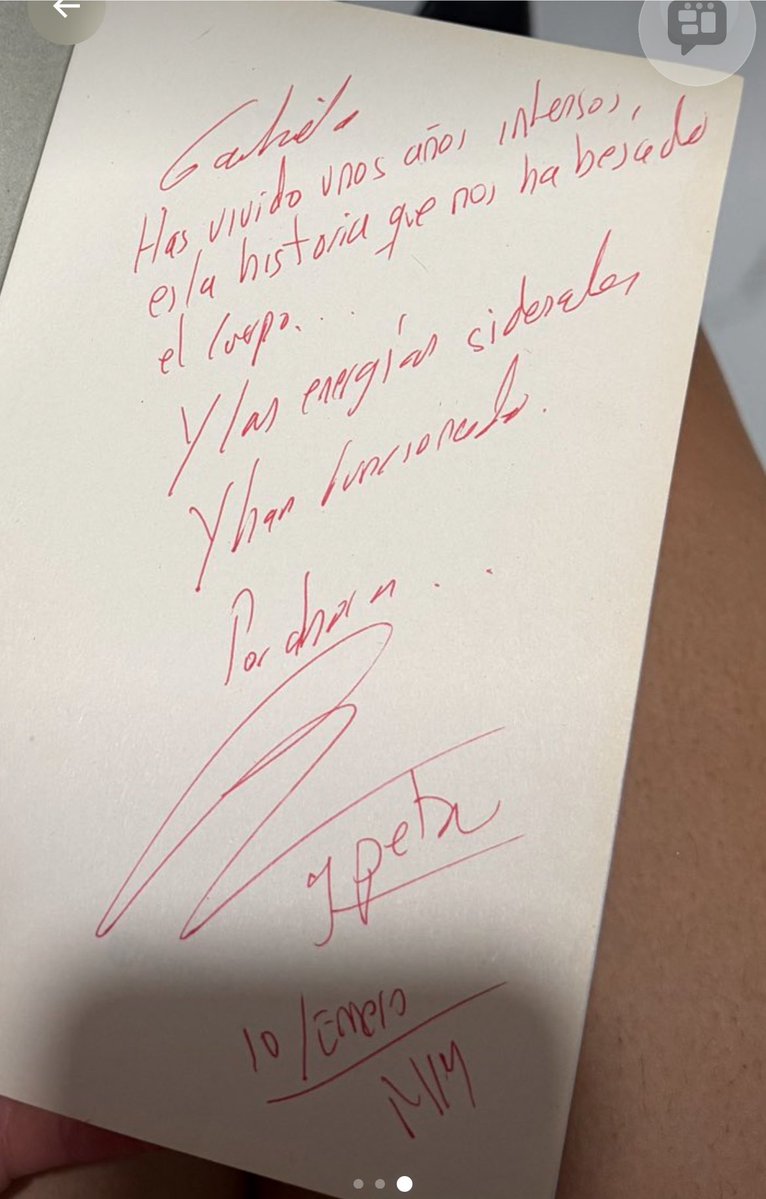 Gabriela
Has vivido unos años intensos,
es la historia que nos ha besado
el cuerpo...
Y las energías siderales
Y han funcionado.
Por ahora...
10/Enero